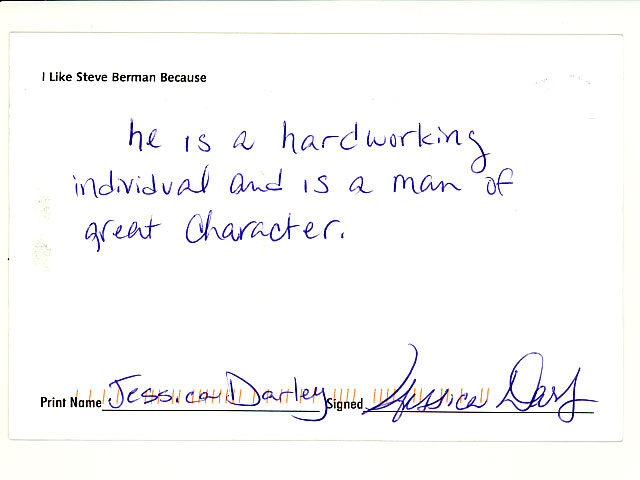 I Like Steve Berman Because
he is a hardworking
individual and is a man of
great character.
Print Name Jessica Darley Signed Jessica Darley